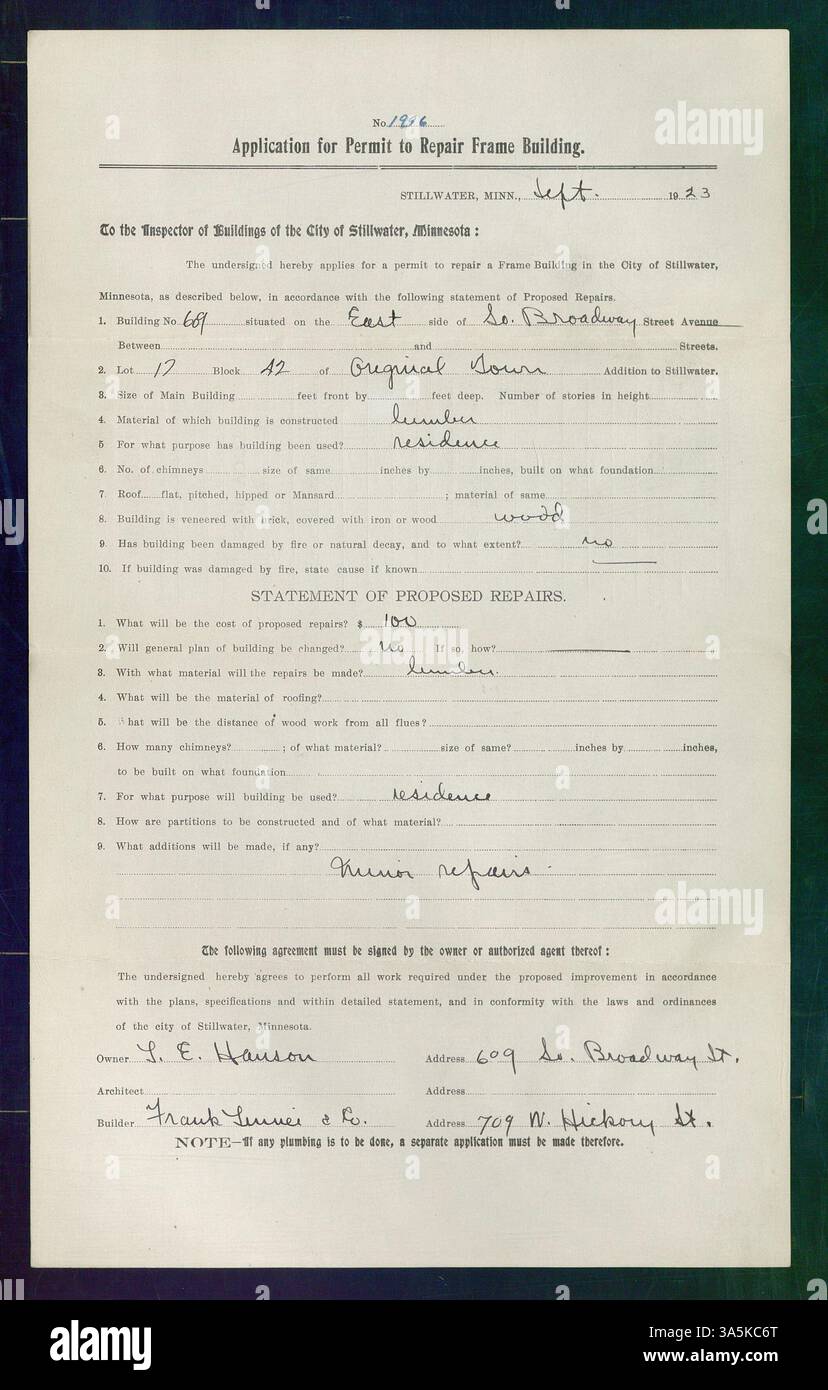 No.
Application for Permit to Repair Frame Building.
STILLWATER, MINN., Sept. 1923
To the Inspector of Buildings of the City of Stillwater, Minnesota :
The undersigned hereby applies for a permit to repair a Frame Building in the City of Stillwater,
Minnesota, as described below, in accordance with the following statement of Proposed Repairs.
1. Building No situated on the East side of So. Broadway Street Avenue
Between and Streets.
2. Lot Block of Original Town Addition to Stillwater.
3. Size of Main Building feet front by feet deep. Number of stories in height
4. Material of which building is constructed lumber
5 For what purpose has building been used? residence
6. No. of chimneys size of same inches by inches, built on what foundation
7. Roof flat, pitched, hipped or Mansard ; material of same
8. Building is veneered with brick, covered with iron or wood wood
9. Has building been damaged by fire or natural decay, and to what extent? no
10. If building was damaged by fire, state cause if known
STATEMENT OF PROPOSED REPAIRS.
1. What will be the cost of proposed repairs? $ 100
2. Will general plan of building be changed? no If so, how?
3. With what material will the repairs be made? lumber.
4. What will be the material of roofing?
5. hat will be the distance of wood work from all flues?
6. How many chimneys? ; of what material? size of same? inches by inches,
to be built on what foundation
7. For what purpose will building be used? residence
8. How are partitions to be constructed and of what material?
9. What additions will be made, if any?
Minor repairs
The following agreement must be signed by the owner or authorized agent thereof :
The undersigned hereby agrees to perform all work required under the proposed improvement in accordance
with the plans, specifications and within detailed statement, and in conformity with the laws and ordinances
of the city of Stillwater, Minnesota.
Owner E. Hanson Address 609 So. Broadway St.
Architect Address
Builder Frank & Co. Address 709 W. Hickory St.
NOTE—If any plumbing is to be done, a separate application must be made therefore.
alamy
alamy
alamy
alamy
alamy
alamy
Image ID: 3A5KC6T
www.alamy.com